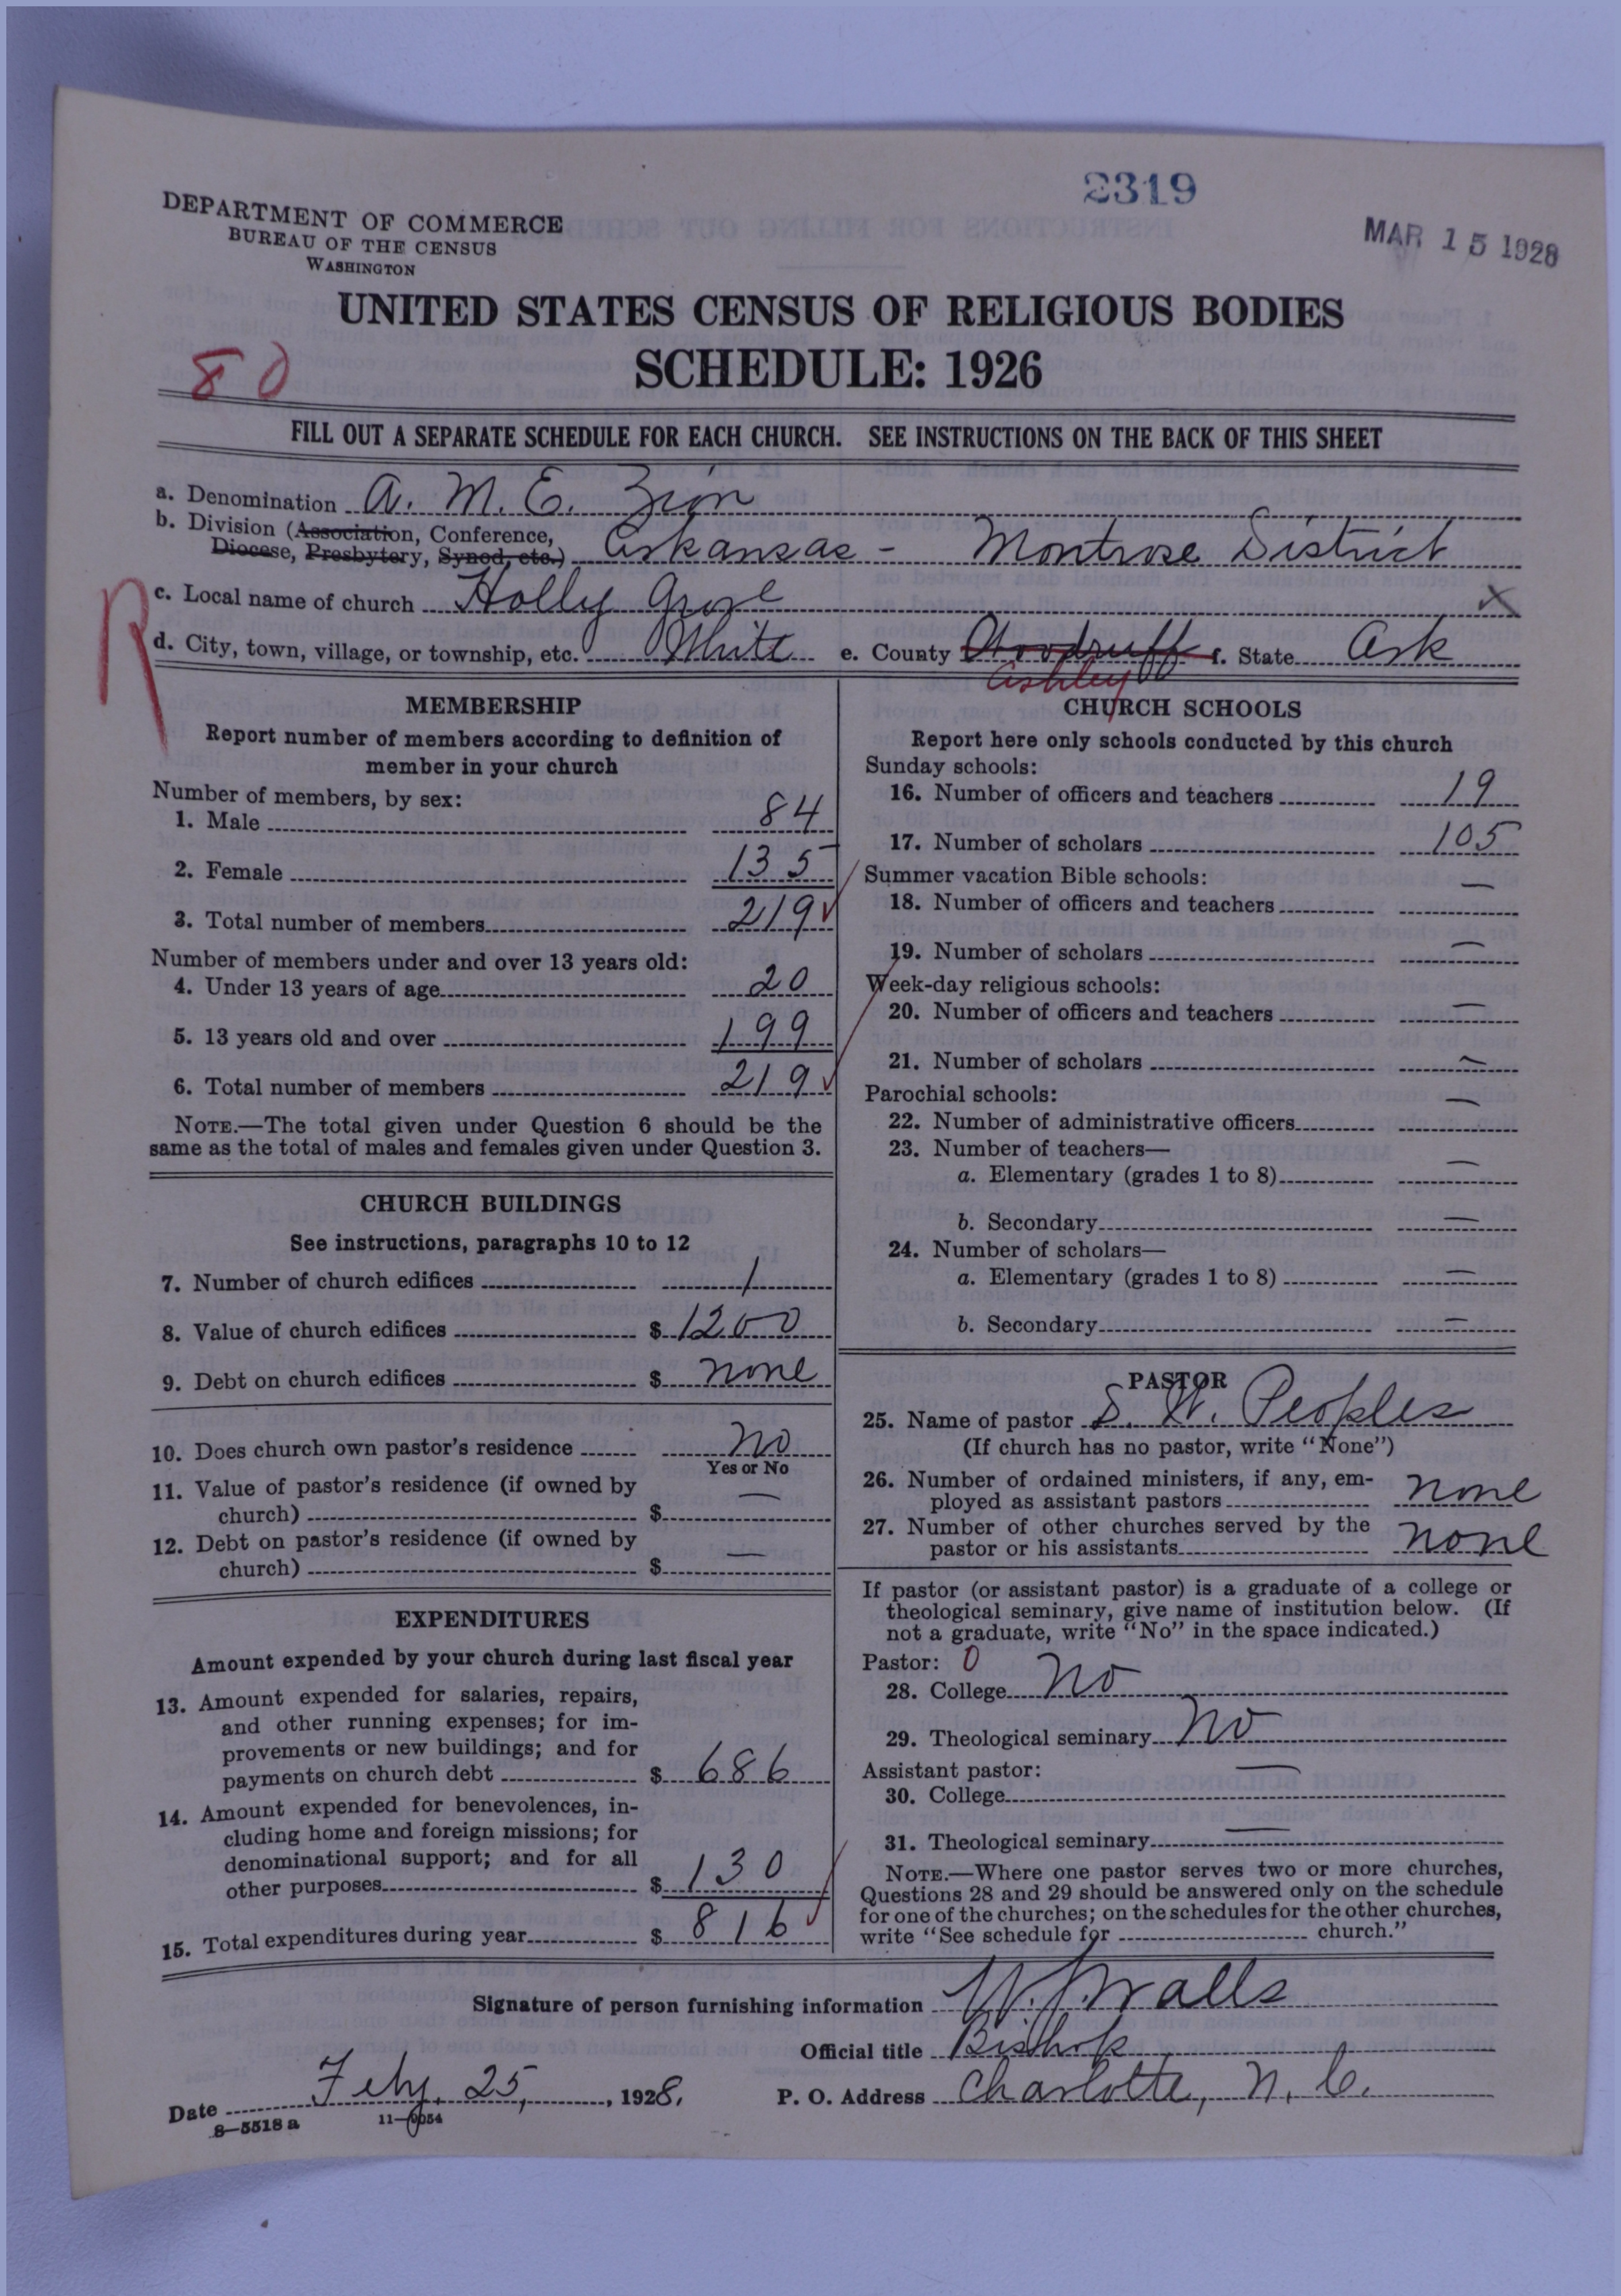 2319
MAR 15 1928
DEPARTMENT OF COMMERCE
BUREAU OF THE CENSUS
WASHINGTON
UNITED STATES CENSUS OF RELIGIOUS BODIES
SCHEDULE: 1926
80
FILL OUT A SEPARATE SCHEDULE FOR EACH CHURCH. SEE INSTRUCTIONS ON THE BACK OF THIS SHEET
a. Denomination A. M. E. Zion
b. Division (Association, Conference,
Diocese, Presbytery, Synod, etc.) Arkansas - Montrose District
R
c. Local name of church Holly Grove X
d. City, town, village, or township, etc. White e. County Woodruff f. State Ark
Ashley
MEMBERSHIP
Report number of members according to definition of
member in your church
Number of members, by sex:
1. Male 84
2. Female 135
3. Total number of members 219
Number of members under and over 13 years old:
4. Under 13 years of age 20
5. 13 years old and over 199
6. Total number of members 219
NOTE.—The total given under Question 6 should be the
same as the total of males and females given under Question 3.
CHURCH BUILDINGS
See instructions, paragraphs 10 to 12
7. Number of church edifices 1
8. Value of church edifices $ 1200
9. Debt on church edifices $ none
10. Does church own pastor's residence No
Yes or No
11. Value of pastor's residence (if owned by
church) $ —
12. Debt on pastor's residence (if owned by
church) $ —
EXPENDITURES
Amount expended by your church during last fiscal year
13. Amount expended for salaries, repairs,
and other running expenses; for im-
provements or new buildings; and for
payments on church debt $ 686
14. Amount expended for benevolences, in-
cluding home and foreign missions; for
denominational support; and for all
other purposes $ 130
15. Total expenditures during year $ 816
CHURCH SCHOOLS
Report here only schools conducted by this church
Sunday schools:
16. Number of officers and teachers 19
17. Number of scholars 105
Summer vacation Bible schools:
18. Number of officers and teachers —
19. Number of scholars —
Week-day religious schools:
20. Number of officers and teachers —
21. Number of scholars —
Parochial schools:
22. Number of administrative officers —
23. Number of teachers—
a. Elementary (grades 1 to 8) —
b. Secondary —
24. Number of scholars—
a. Elementary (grades 1 to 8) —
b. Secondary —
PASTOR
25. Name of pastor S. W. Peoples
(If church has no pastor, write "None")
26. Number of ordained ministers, if any, em-
ployed as assistant pastors none
27. Number of other churches served by the
pastor or his assistants none
If pastor (or assistant pastor) is a graduate of a college or
theological seminary, give name of institution below. (If
not a graduate, write "No" in the space indicated.)
Pastor: 0
28. College No
29. Theological seminary No
Assistant pastor:
30. College —
31. Theological seminary —
NOTE.—Where one pastor serves two or more churches,
Questions 28 and 29 should be answered only on the schedule
for one of the churches; on the schedules for the other churches,
write "See schedule for church."
Signature of person furnishing information W. J. Walls
Official title Bishop
Date Feby. 25, 1928. P. O. Address Charlotte, N. C.
8—5518 a 11—9054